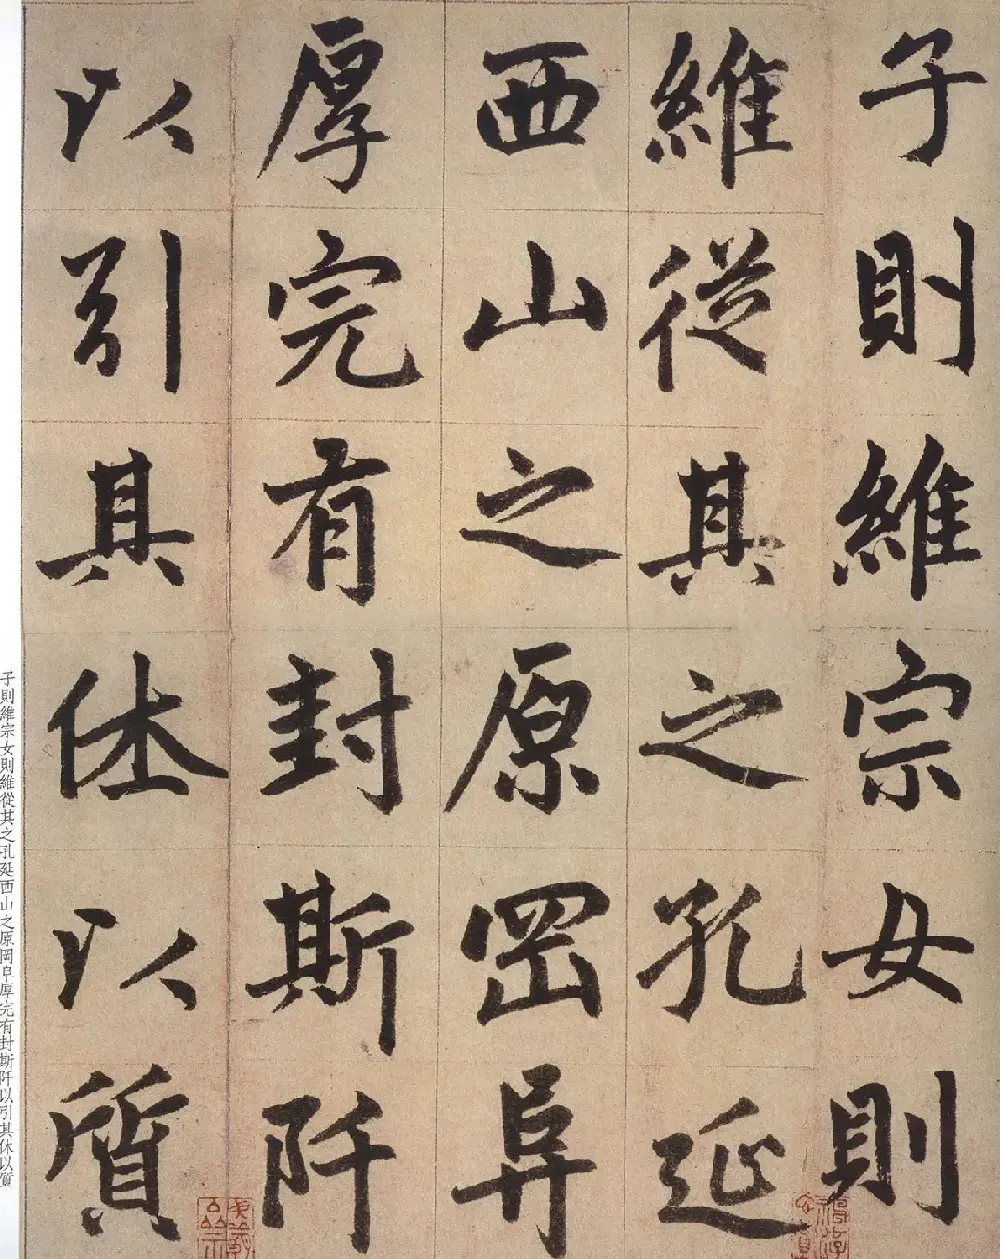 子則維宗女則
維從其之孔延
西山之原岡阜
厚完有封斯阡
以引其休以質
子則維宗女則維從其之孔延西山之原岡阜厚完有封斯阡以引其休以質